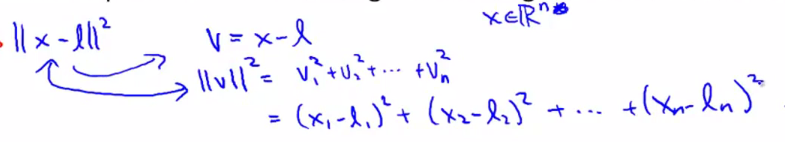 x∈ℝⁿ
||x-l||² v=x-l
||v||²= v₁²+v₂²+⋯+vₙ²
= (x₁-l₁)²+(x₂-l₂)²+⋯+(xₙ-lₙ)²